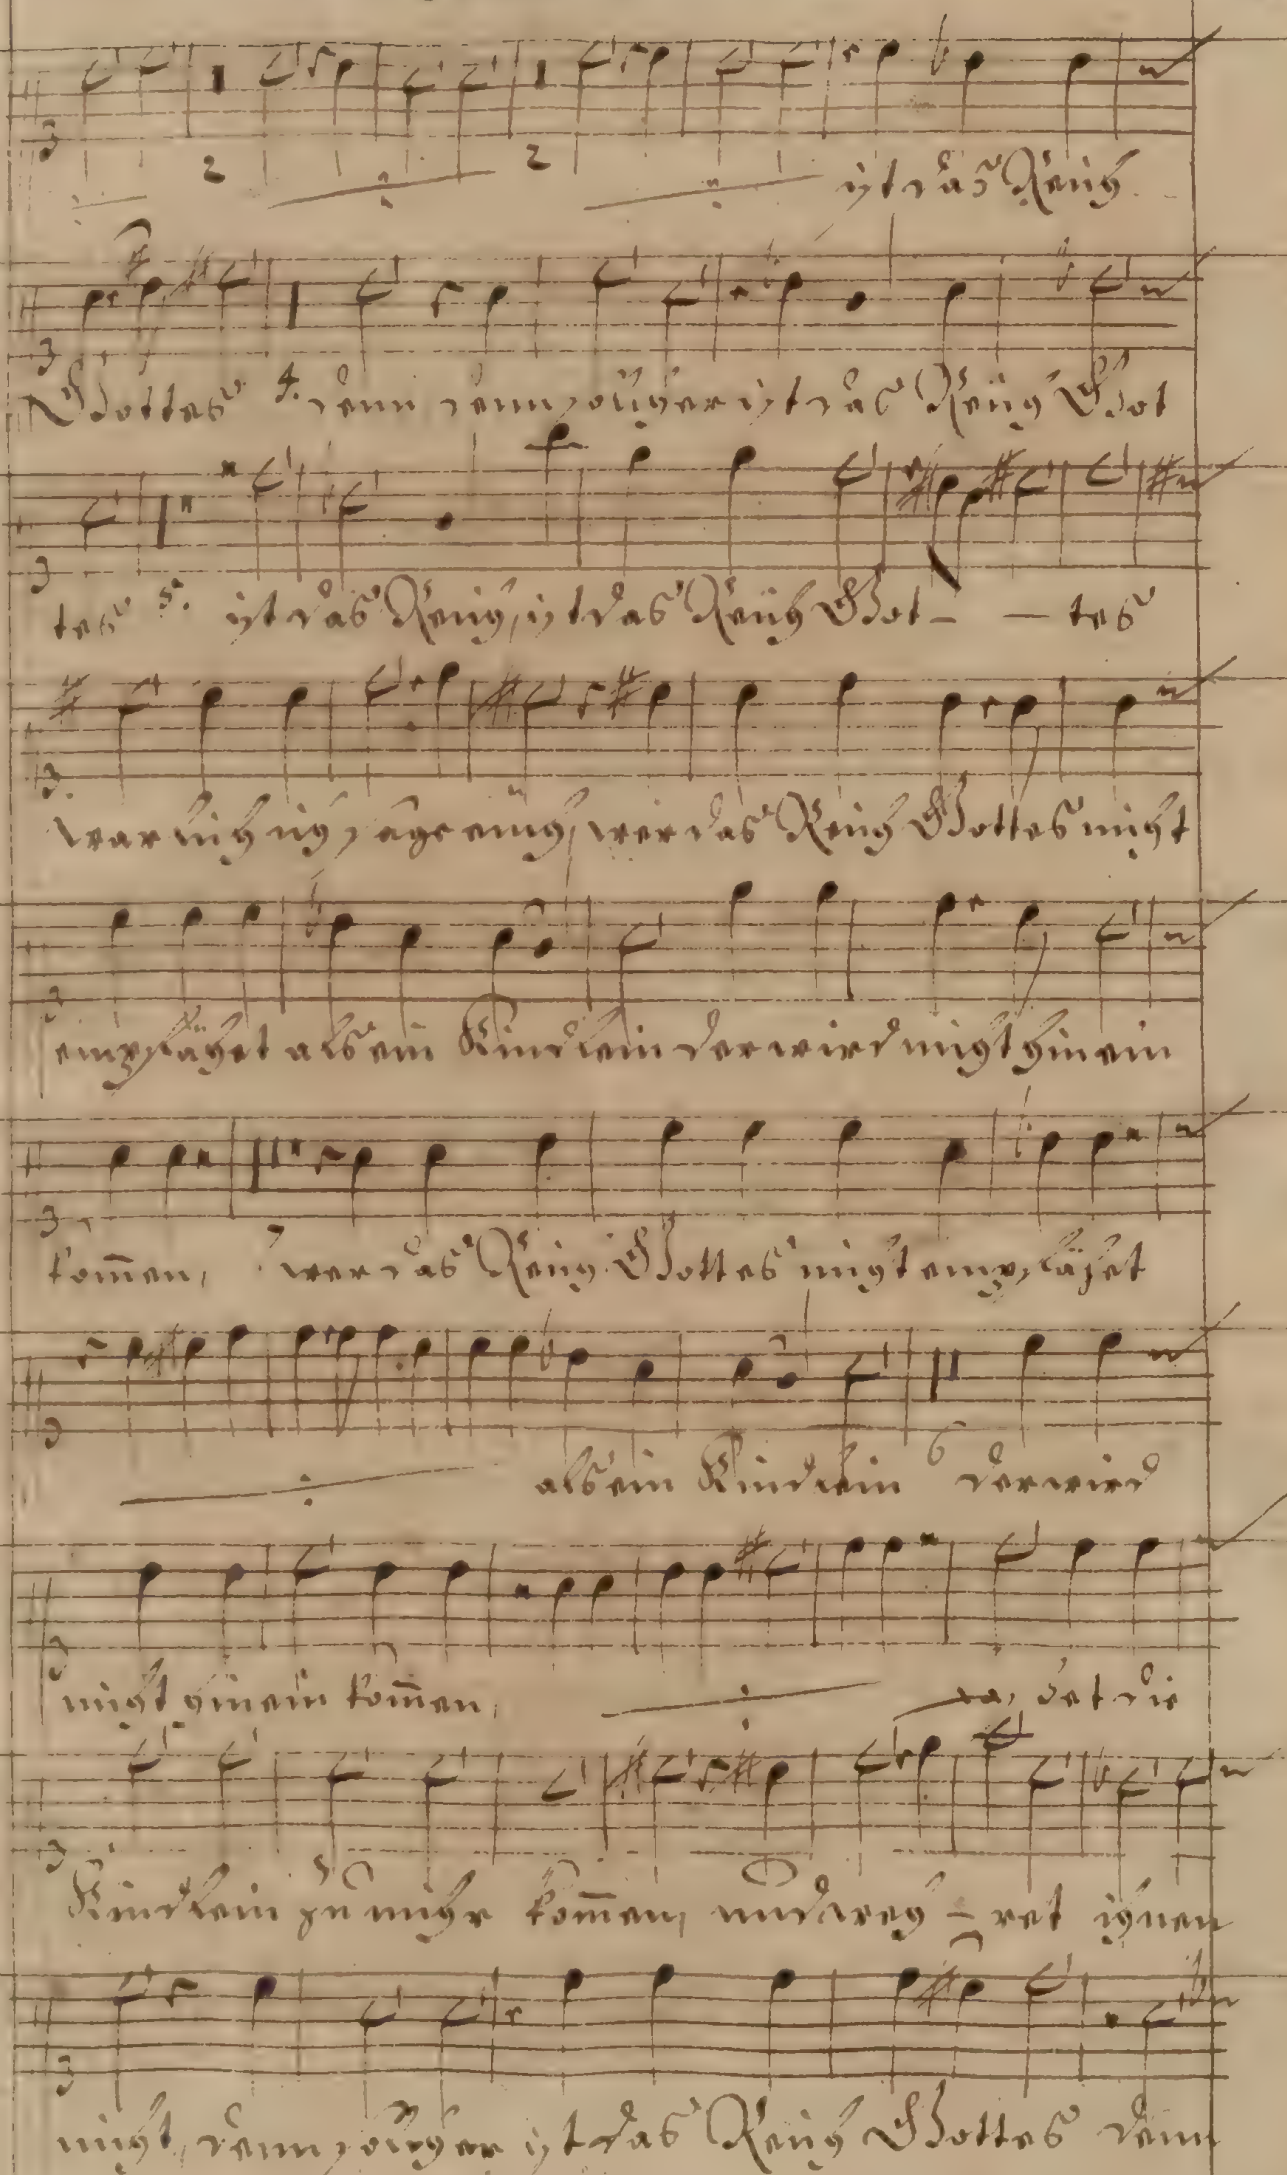 2 2 ist das Reich
Gottes 4. denn denn solcher ist das Reich Got
tes 5. ist das Reich, ist das Reich Got - - tes
warlich ich sage euch, wer das Reich Gottes nicht
empfähet als ein Kindlein der wird nicht hinein
kom̄en, 7 wer das Reich Gottes nicht empfähet
als ein Kindlein 6 der wird
nicht hinein kom̄en, det die
Kindlein zu mihr kom̄en, und - ret ihnen
nicht, denn solcher ist das Reich Gottes denn